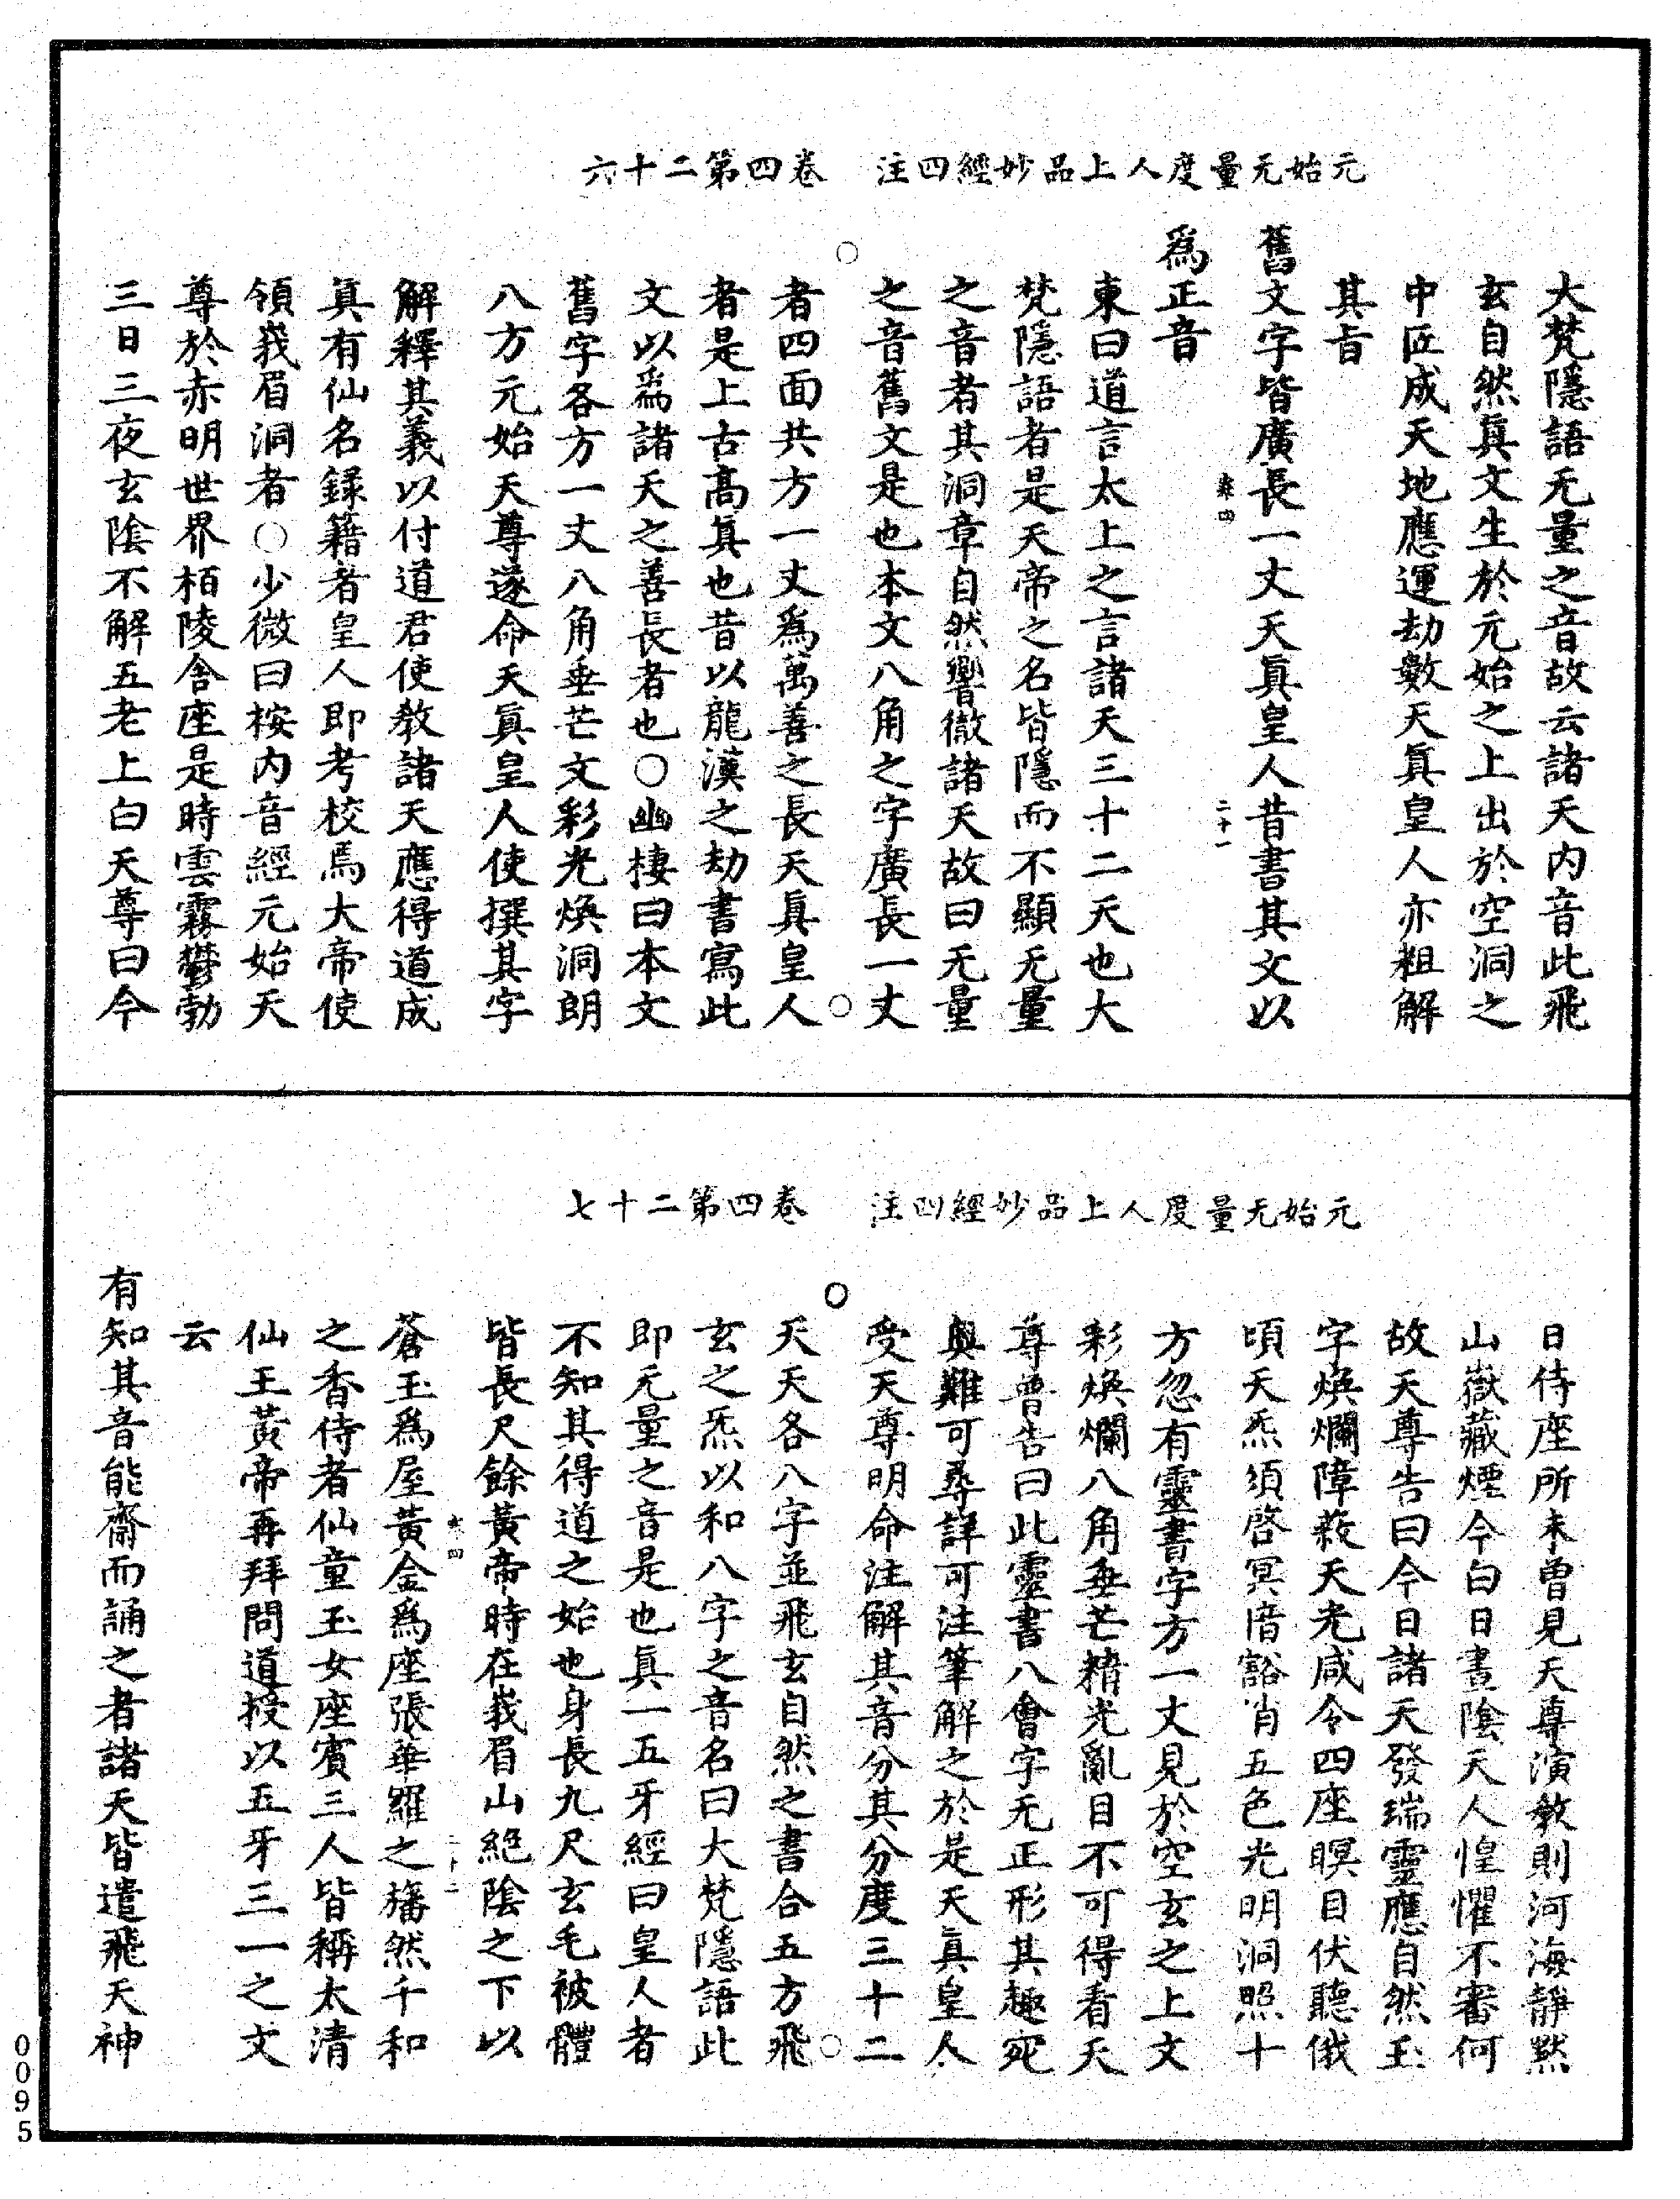 元始无量度人上品妙經四注　卷四第二十六
大梵隱語无量之音故云諸天内音此飛
玄自然眞文生於元始之上出於空洞之
中匠成天地應運劫數天眞皇人亦粗解
其旨
舊文字皆廣長一丈天眞皇人昔書其文以
卷四　二十一
爲正音
東曰道言太上之言諸天三十二天也大
梵隱語者是天帝之名皆隱而不顯无量
之音者其洞章自然響徹諸天故曰无量
之音舊文是也本文八角之字廣長一丈
者四面共方一丈爲萬善之長天眞皇人
者是上古高眞也昔以龍漢之劫書寫此
文以爲諸天之善長者也○幽棲曰本文
舊字各方一丈八角垂芒文彩光煥洞朗
八方元始天尊遂命天眞皇人使撰其字
解釋其義以付道君使教諸天應得道成
眞有仙名録籍者皇人即考校焉大帝使
領峩眉洞者○少微曰桉内音經元始天
尊於赤明世界栢陵舍座是時雲霧鬱勃
三日三夜玄陰不解五老上白天尊曰今
元始无量度人上品妙經四注　卷四第二十七
日侍座所未曾見天尊演教則河海靜默
山嶽藏煙今白日晝陰天人惶懼不審何
故天尊告曰今日諸天發瑞靈應自然玉
字煥爛障蔽天光咸令四座瞑目伏聽俄
頃天炁須啓冥暗豁消五色光明洞照十
方忽有靈書字方一丈見於空玄之上文
彩煥爛八角垂芒精光亂目不可得看天
尊曾告曰此靈書八會字无正形其趣宛
奧難可尋詳可注筆解之於是天眞皇人
受天尊明命注解其音分其分度三十二
天天各八字並飛玄自然之書合五方飛
玄之炁以和八字之音名曰大梵隱語此
即无量之音是也眞一五牙經曰皇人者
不知其得道之始也身長九尺玄毛被體
皆長尺餘黃帝時在峩眉山絶陰之下以
卷四　二十二
蒼玉爲屋黃金爲座張華羅之旛然千和
之香侍者仙童玉女座賓三人皆稱太清
仙王黃帝再拜問道授以五牙三一之文
云
有知其音能齋而誦之者諸天皆遣飛天神
0095